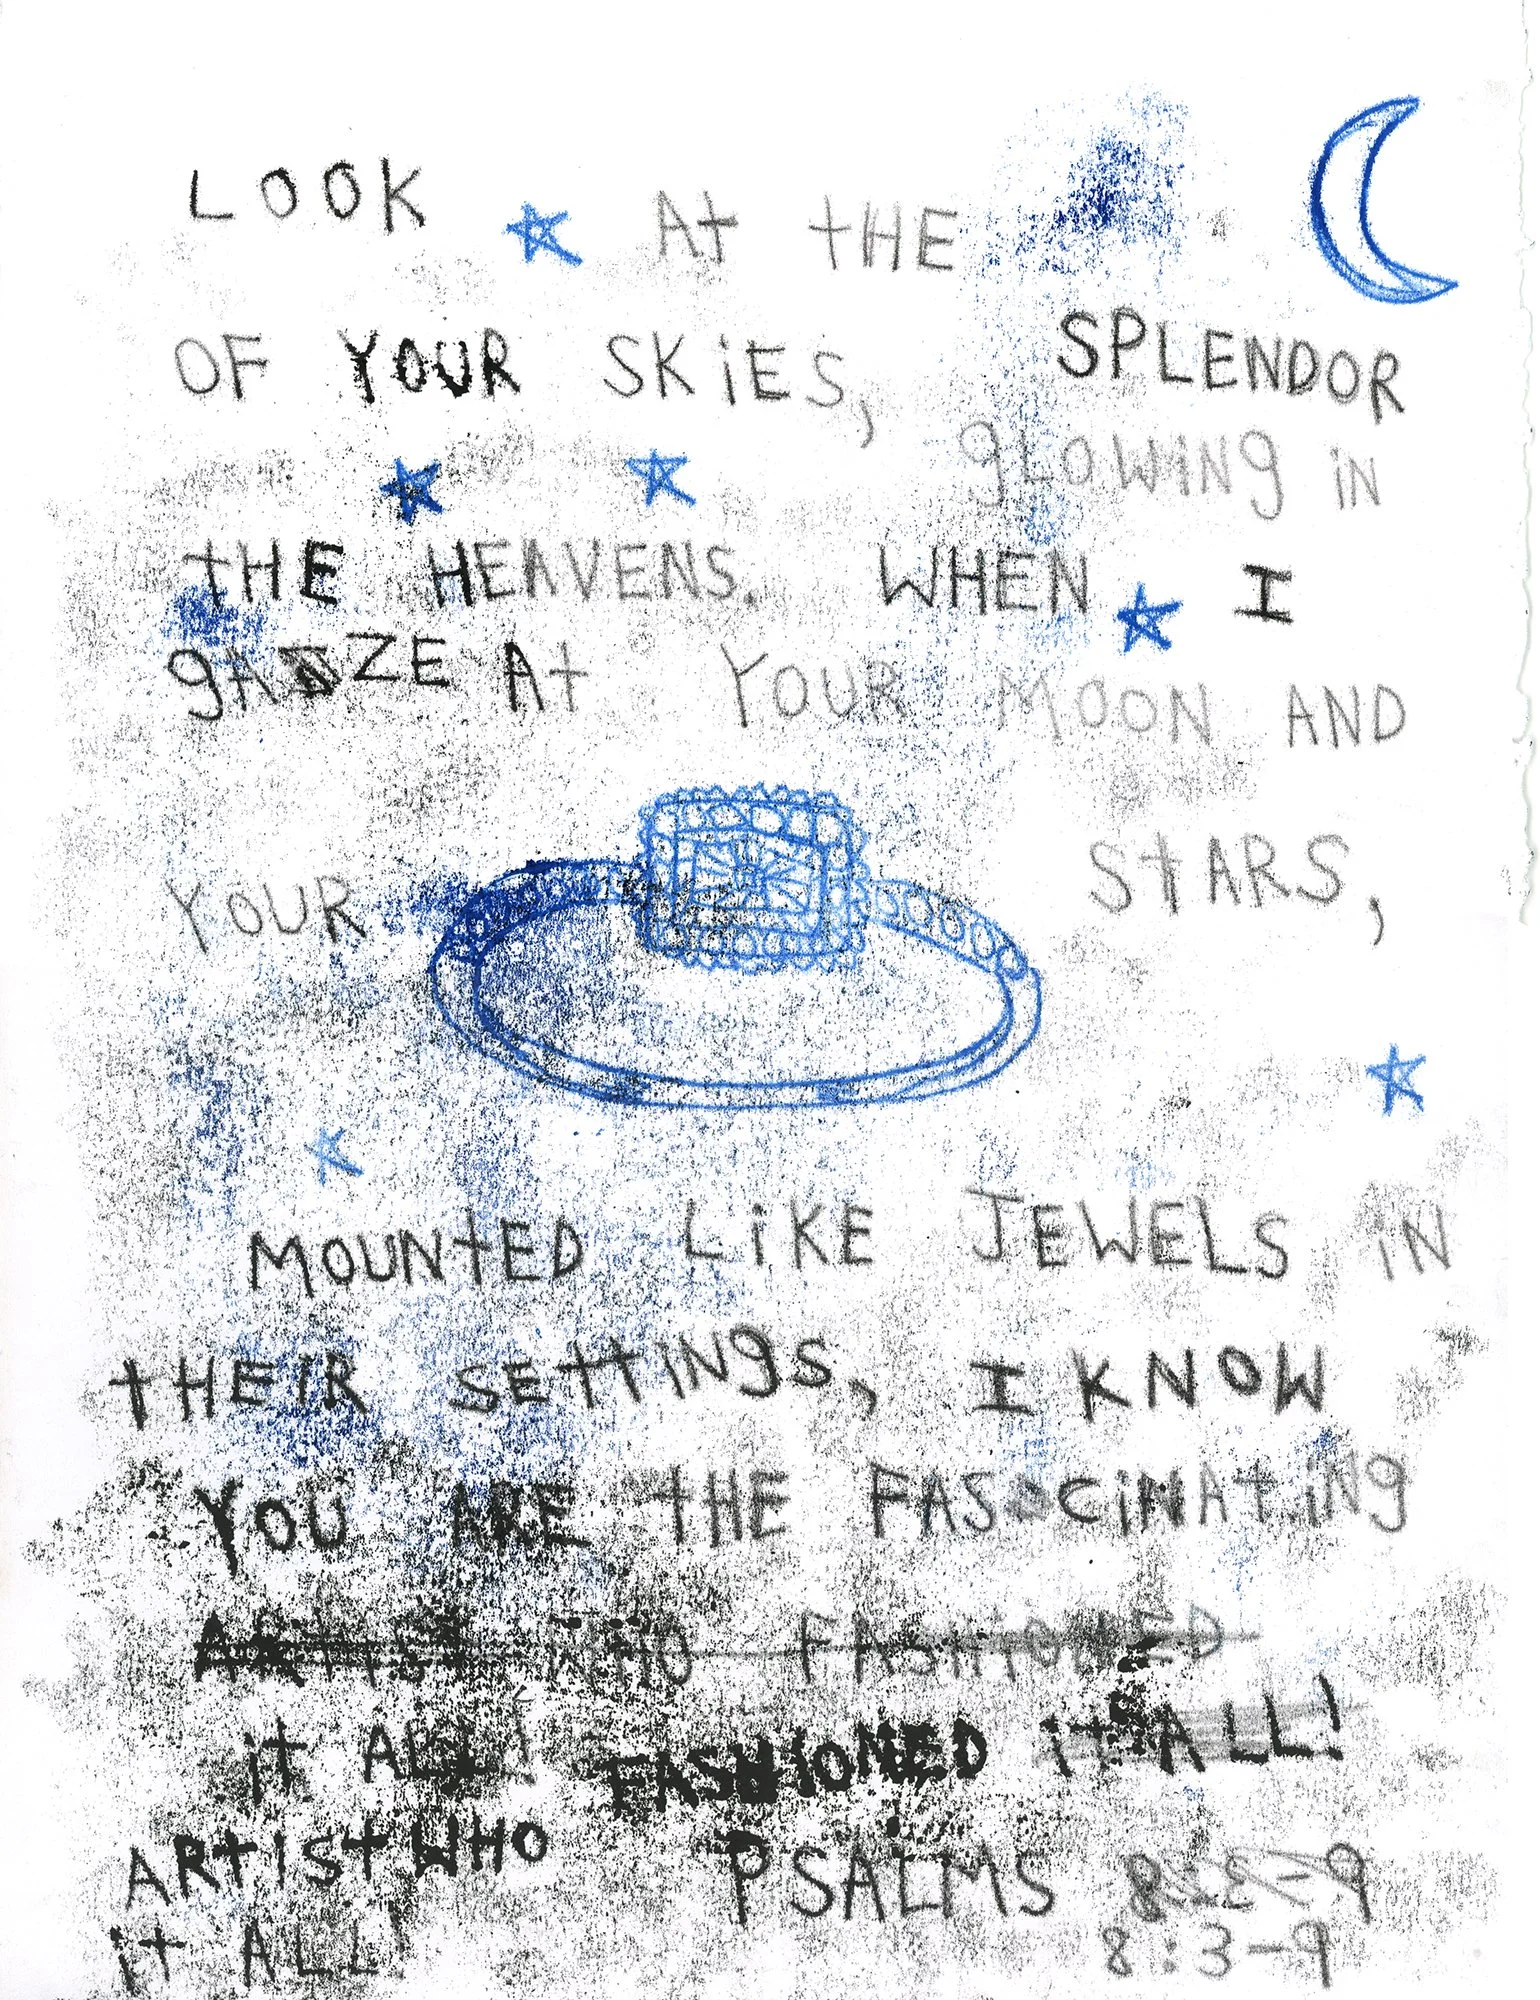 LOOK At tHE
SPLENDOR
OF YOUR SKiES,
gLOWiNg iN
tHE HEAVENS. WHEN I
gAZE At YOUR MOON AND
YOUR StARS,
MOUNtED LiKE JEWELS iN
tHEiR SEttiNgS, I KNOW
YOU ARE tHE FASCiNAtiNg
ARtiSt WHO FASHiONED
it ALL! FASHiONED it ALL!
ARtiSt WHO
PSALMS 8:3-9
it ALL! 8:3-9